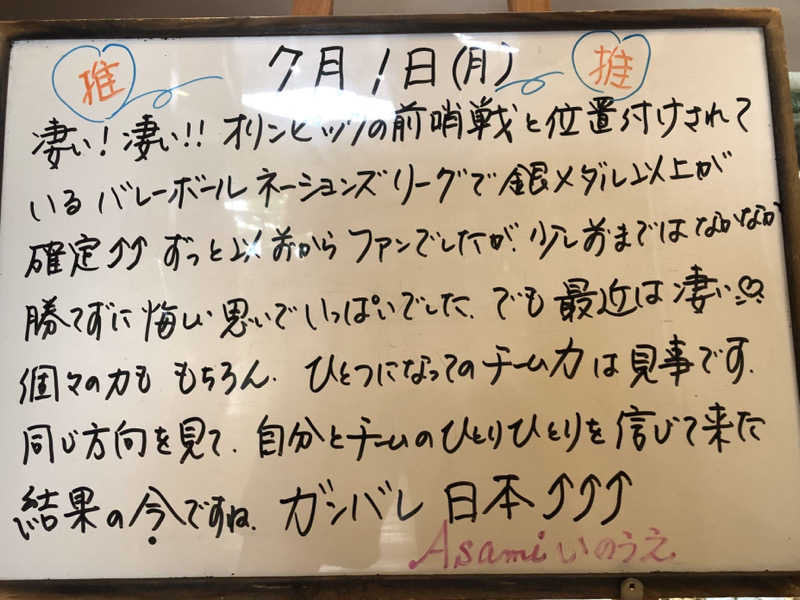 推 7月1日(月) 推
凄い!凄い!!オリンピックの前哨戦と位置付けされて
いるバレーボールネーションズリーグで銀メダル以上が
確定↑↑ずっと以前からファンでしたが、少し前まではなかなか
勝てずに悔しい思いでいっぱいでした、でも最近は凄い♡
個々の力ももちろん、ひとつになってのチーム力は見事です、
同じ方向を見て、自分とチームのひとりひとりを信じて来た
結果の今ですね、ガンバレ日本↑↑↑
Asamiいのうえ